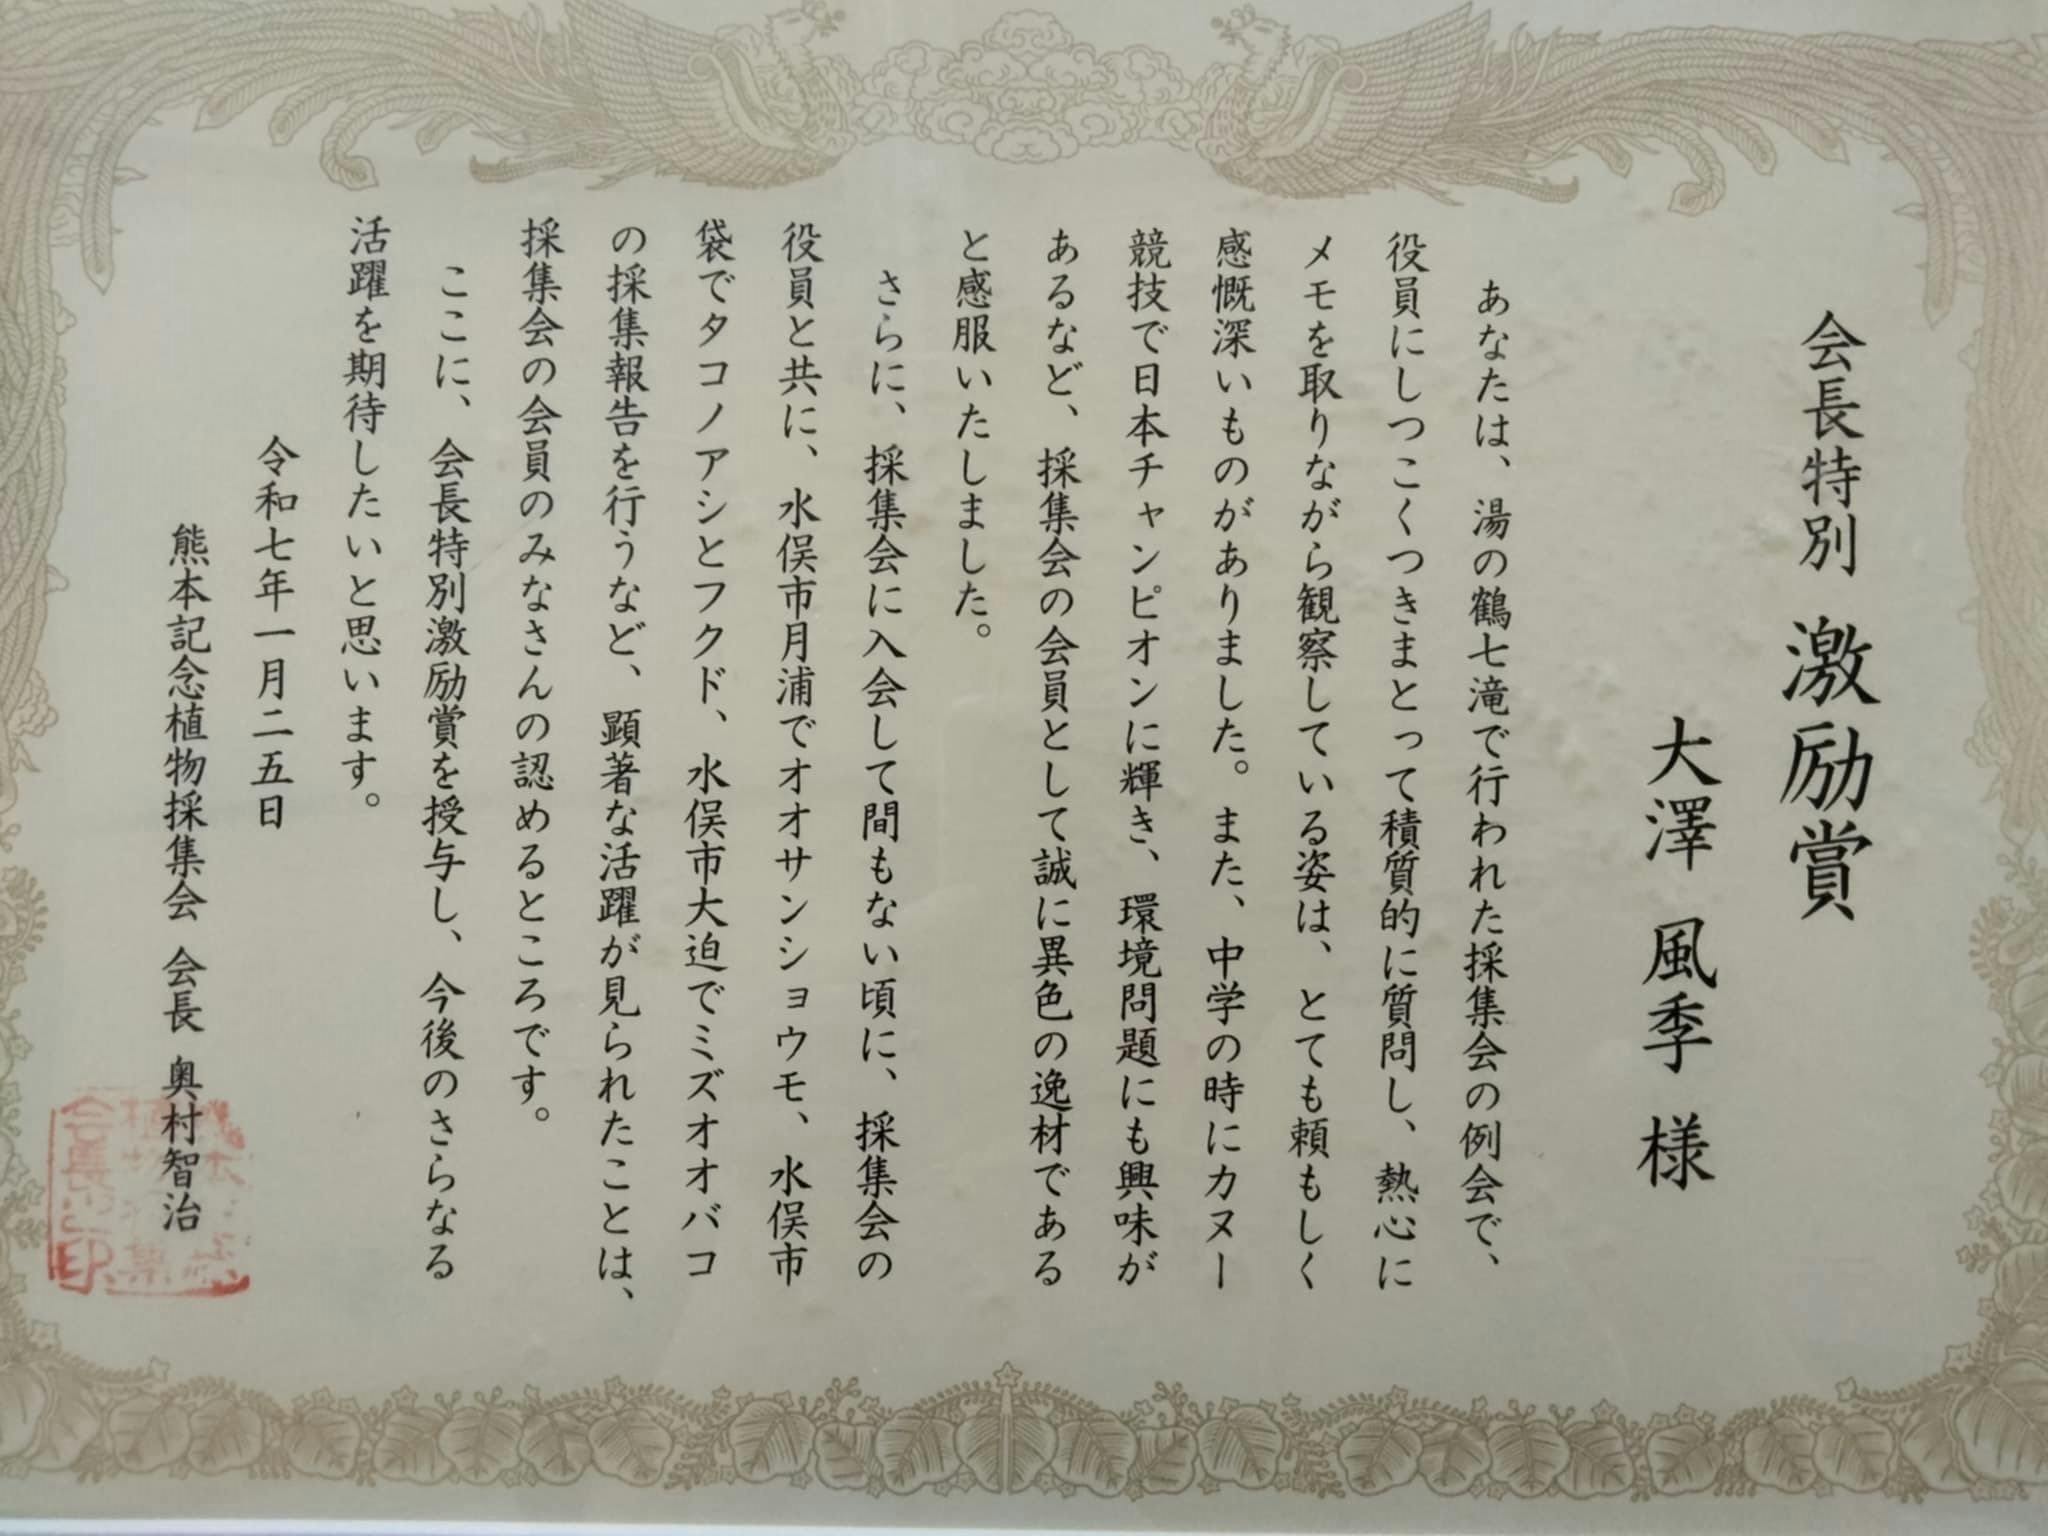 会長特別 激励賞
大澤 風季 様
あなたは、湯の鶴七滝で行われた採集会の例会で、
役員にしつこくつきまとって積質的に質問し、熱心に
メモを取りながら観察している姿は、とても頼もしく
感慨深いものがありました。また、中学の時にカヌー
競技で日本チャンピオンに輝き、環境問題にも興味が
あるなど、採集会の会員として誠に異色の逸材である
と感服いたしました。
さらに、採集会に入会して間もない頃に、採集会の
役員と共に、水俣市月浦でオオサンショウモ、水俣市
袋でタコノアシとフクド、水俣市大迫でミズオオバコ
の採集報告を行うなど、顕著な活躍が見られたことは、
採集会の会員のみなさんの認めるところです。
ここに、会長特別激励賞を授与し、今後のさらなる
活躍を期待したいと思います。
令和七年一月二五日
熊本記念植物採集会 会長 奥村智治